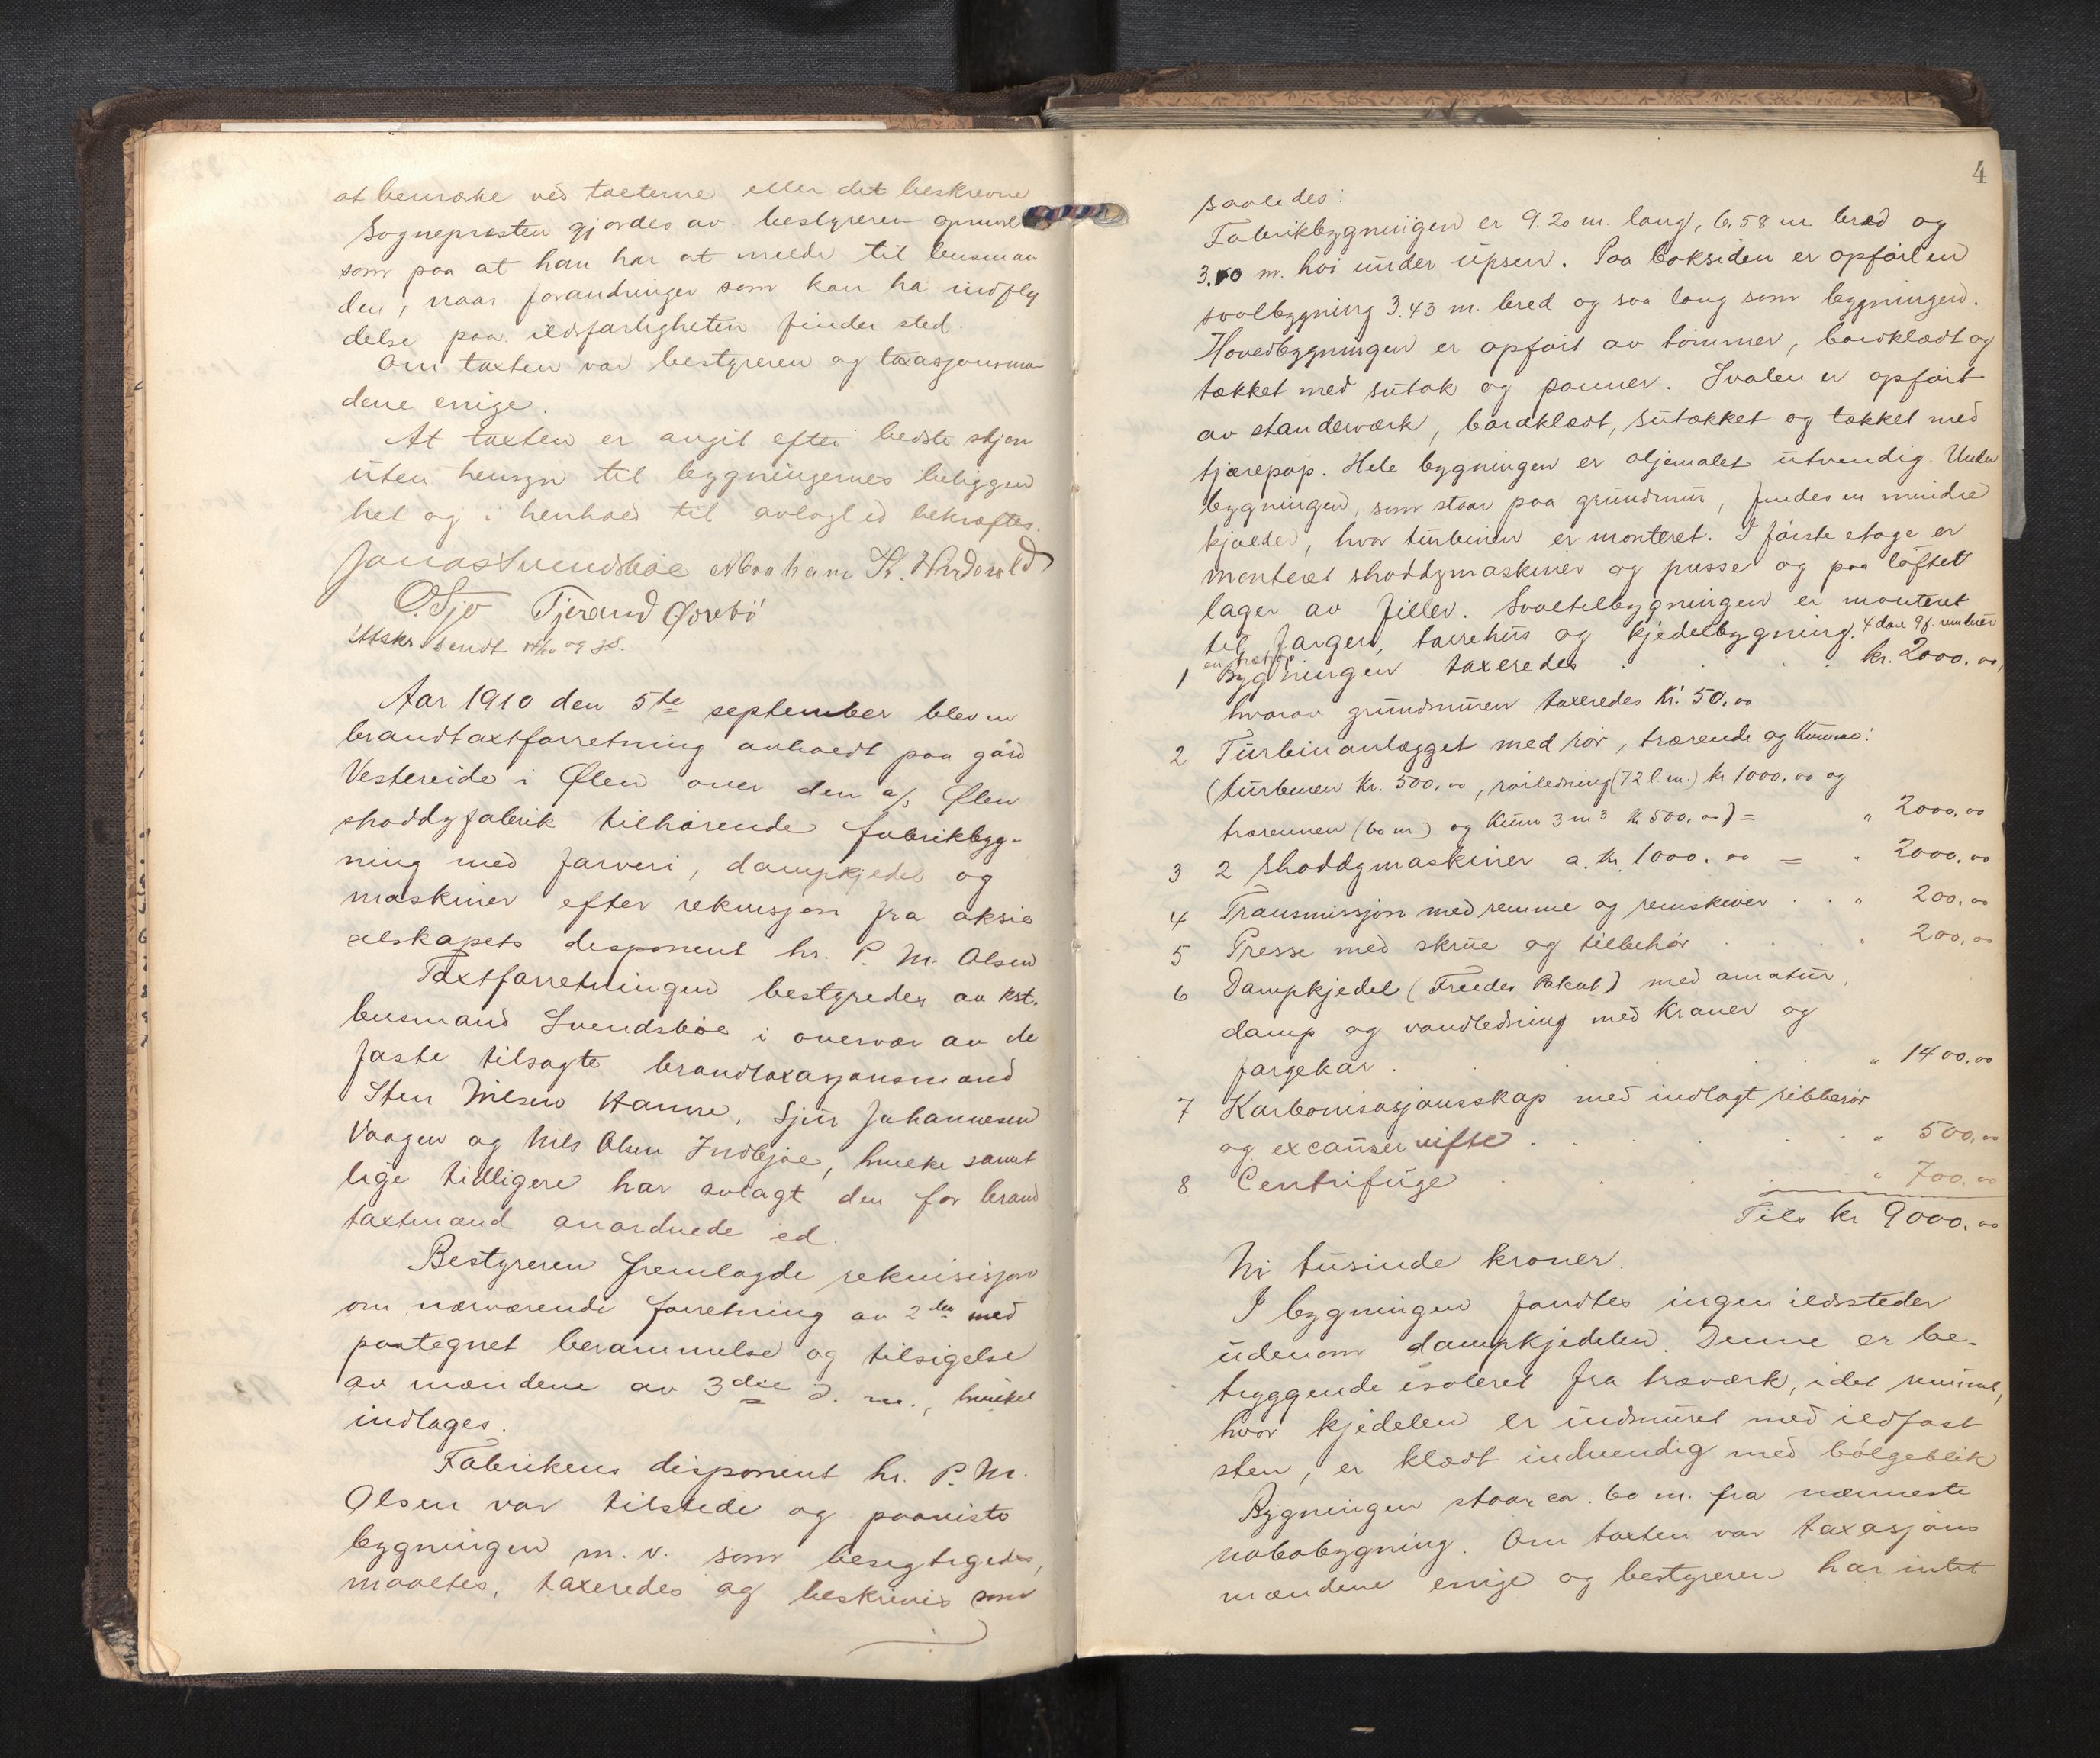 at bemærke ved taxterne eller det beskrevne
Sognepræsten gjordes av bestyreren opmerk
som paa at han har at melde til lensman
den, naar forandringer som kan ha indfly
delse paa ildsfarligheten finder sted.
Om taxten var bestyreren og taxasjonsmæ
dene enige.
At taxten er avgit efter bedste skjøn
uten hensyn til bygningernes beliggen
het og i henhold til avlagt ed bekræftes.
Jonas Svendsbøe Abraham K.
O. Sjo Tjerand Ørebö
Utskr. sendt
Aar 1910 den 5te september blev en
brandtaxtforretning avholdt paa gård
Vestereide i Ølen over den a/s Ølen
shoddyfabrik tilhørende fabrikbyg-
ning med farveri, dampkjedel og
maskiner efter rekvisjon fra aksie
selskapets disponent hr. P. M. Olsen
Taxtforretningen bestyredes av kst.
lensmand Svendsbøe i overvær av de
faste tilsagte brandtaxasjonsmænd
Sten Nilsen Hamre, Sjur Johannesen
Vaagen og Nils Olsen Indbjoe, hvilke samt
lige tidligere har avlagt den for brand
taxtmænd anordnede ed.
Bestyreren fremlagde rekvisisjon
om nærværende forretning av 2den med
paategnet berammelse og tilsigelse
av mændene av 3die d. m., hvilket
indtages.
Fabrikens disponent hr. P. M.
Olsen var tilstede og paaviste
bygningen m.v. som besigtigedes,
maaltes, taxeredes og beskrives som
4
saaledes:
Fabrikbygningen er 9.20 m. lang, 6,58 m bred og
3.50 m. høi under upsen. Paa baksiden er opført en
svalbygning 3.43 m. bred og saa lang som bygningen.
Hovedbygningen er opført av tømmer, bordklædt og
tækket med sutak og panner. Svalen er opført
av standerværk, bordklædt, sutækket og tækket med
tjærepap. Hele bygningen er oljemalet utvendig. Under
bygningen, som staar paa grundmur, findes en mindre
kjælder, hvor turbinen er monteret. I første etage er
monteret shoddymaskiner og presse og paa loftet
lager av filler. Svaltilbygningen er monteret
til fargeri, tørrehus og kjedelbygning. 4 døre 9 f. vinduer
en trætrap
1 Bygningen taxeredes . . . . kr. 2000.00,
hvorav grundmuren taxeredes Kr. 50.00
2 Turbinanlægget med rør, trærende og Kumme:
(turbinen Kr. 500,00, rørledning (72 l.m.) kr 1000,00 og
trærennen (60 m) og Kum 3 m3 Kr 500,00) = " 2000,00
3 2 Shoddymaskiner a. Kr. 1000.00 = " 2000,00
4 Transmissjon med remme og remskiver . . " 200,00
5 Presse med skrue og tilbehør . . . " 200,00
6 Dampkjedel ( Patent) med amatur,
damp og vandledning med Kraner og
fargekar . . . . " 1400,00
7 Karbonisasjonsskap med indlagt ribberør
og excauservifte . . . . " 500,00
8 Centrifuge . . . . " 700,00
Tils kr 9000.00
Ni tusinde kroner.
I bygningen fandtes ingen ildsteder
udenom dampkjedelen. Denne er be-
tryggende isoleret fra træværk, idet rummet,
hvor kjedelen er indmuret med ildfast
sten, er klædt indvendig med bølgeblik
Bygningen staar ca. 60 m. fra nærmeste
nabobygning. Om taxten var taxasjons
mændene enige og bestyreren har intet